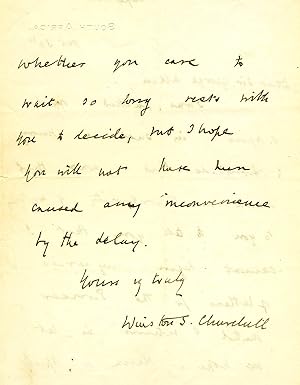 whether you care to
wait so long rests with
you to decide, but I hope
you will not have been
caused any inconvenience
by the delay.
Yours v truly
Winston S. Churchill